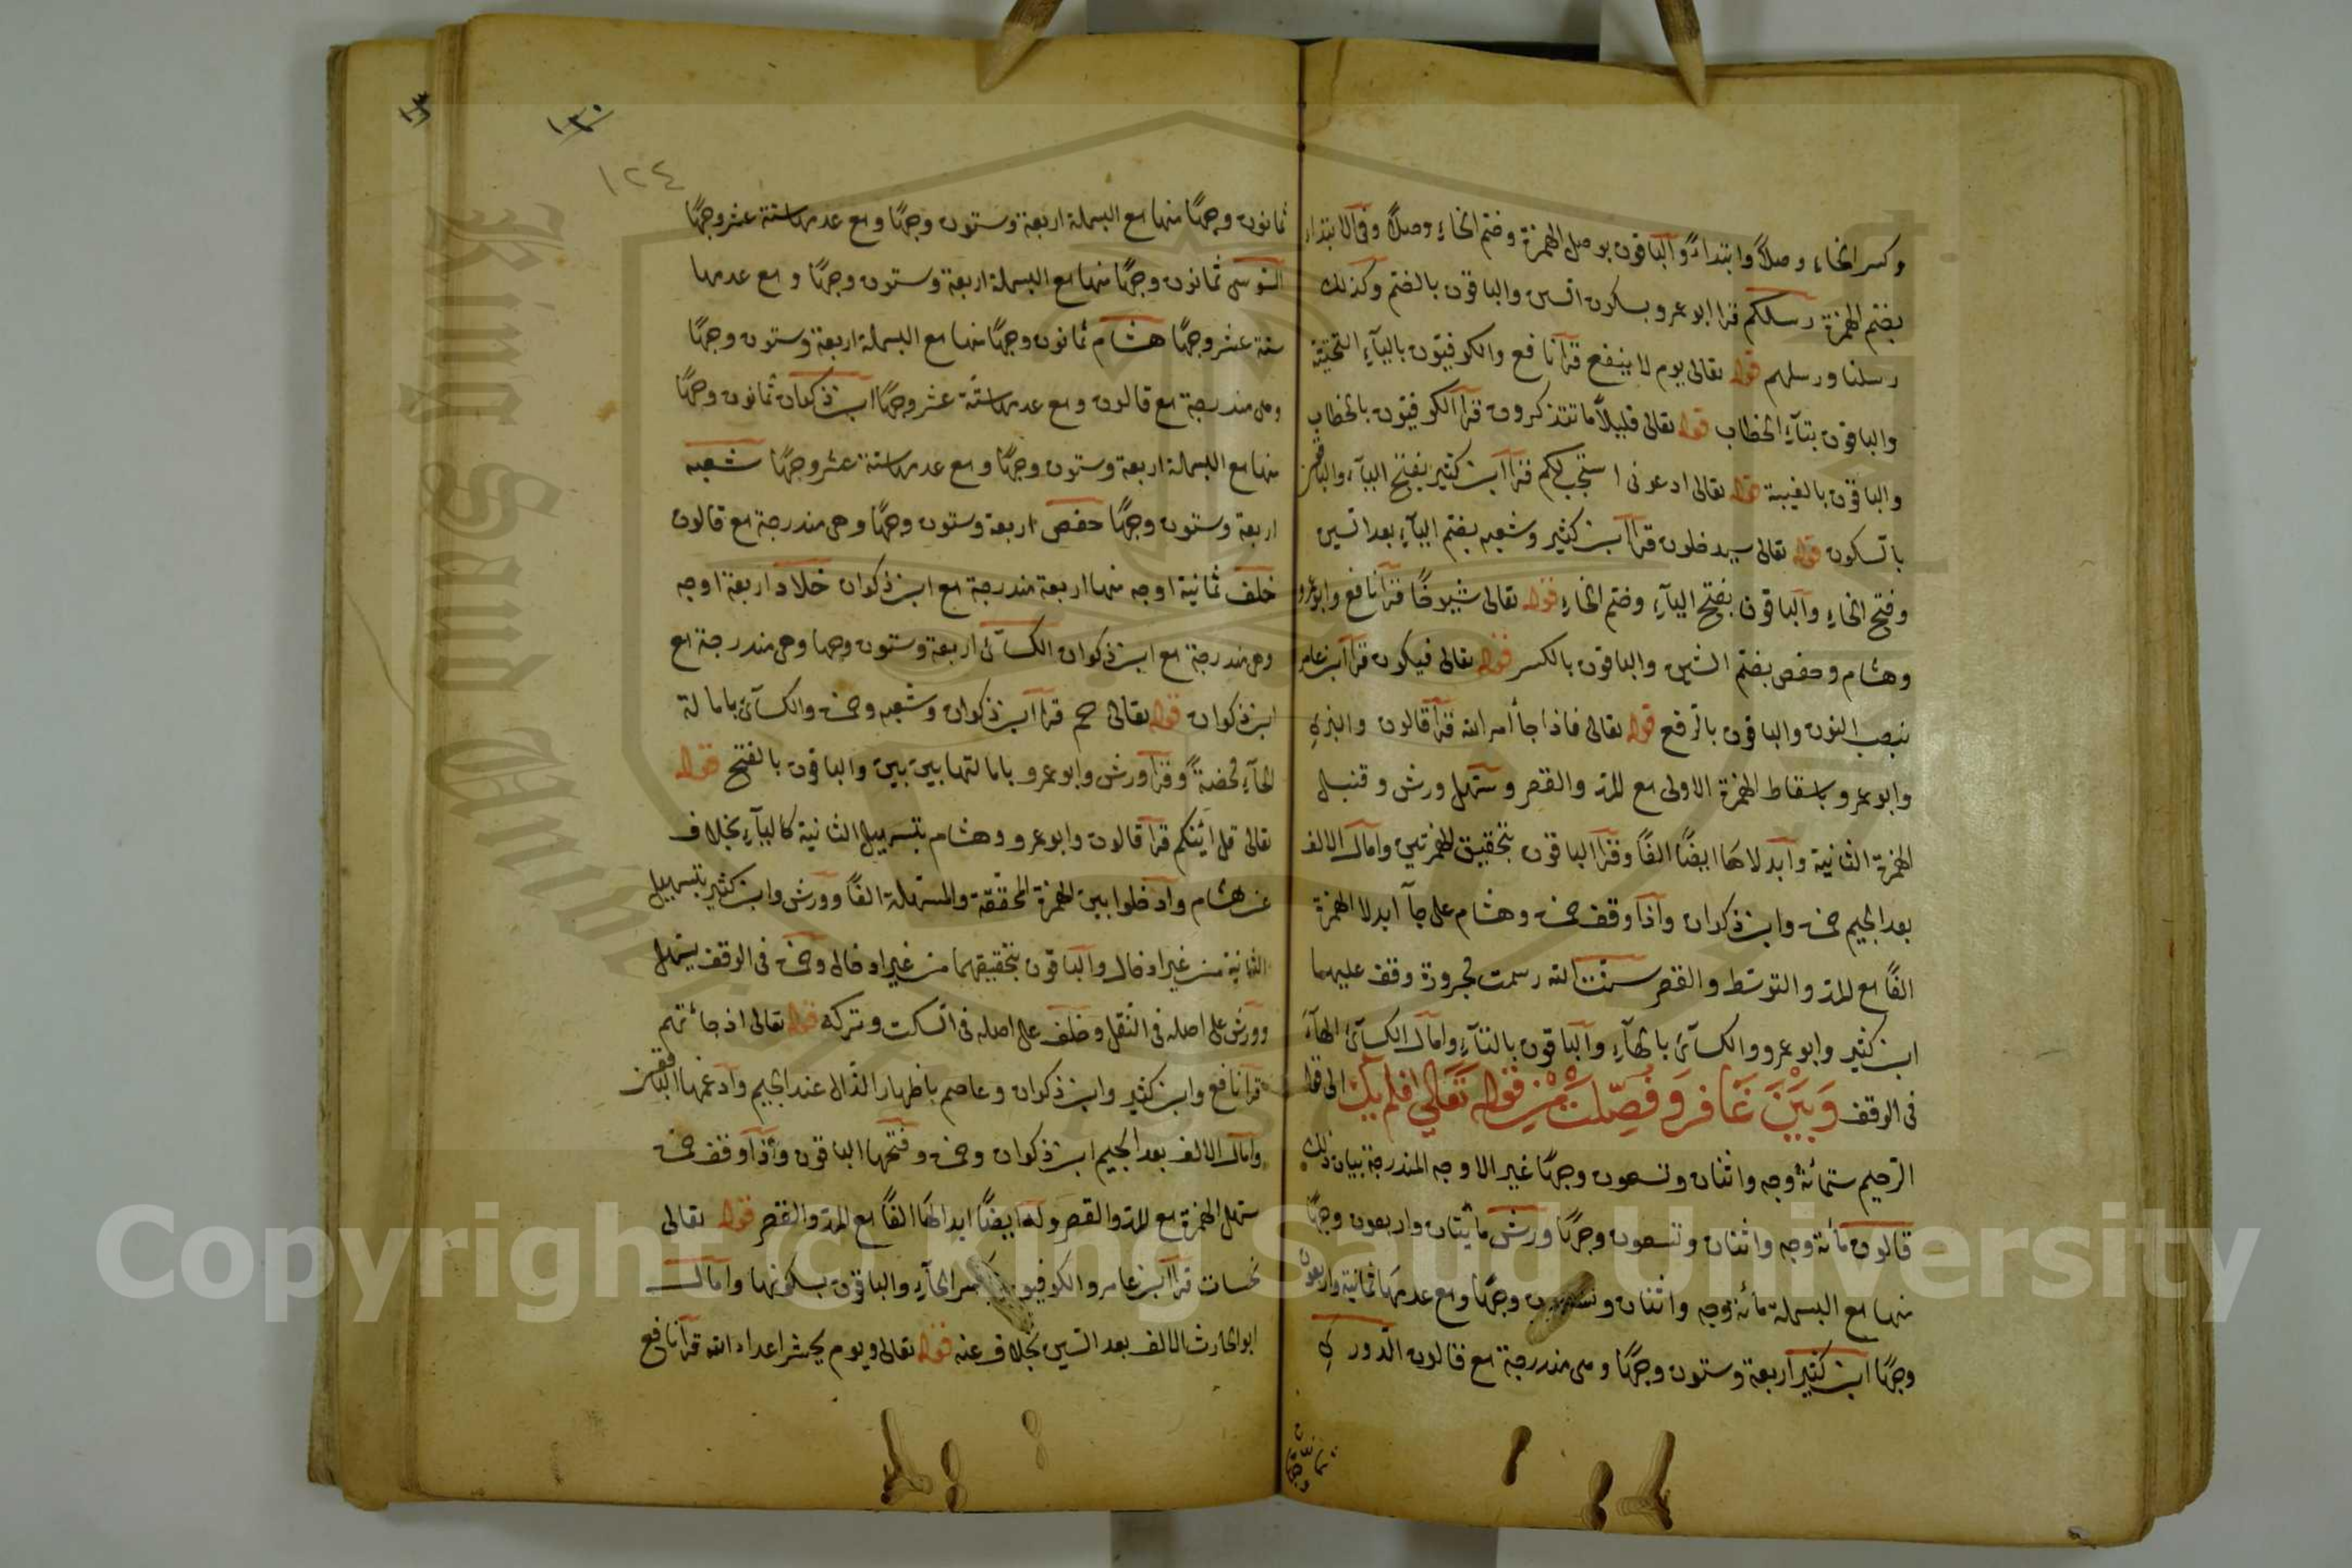 وكسر الخاء وصلاً وابتداءً والباقون بوصل الهمزة وضم الخاء وصلاً وفى الابتداء
بضم الهمزة رسلكم قرا ابو عمرو بسكون السين والباقون بالضم وكذلك
رسلنا ورسلهم قوله تعالى يوم لا ينفع قرآ نافع والكوفيون باليآء التحتية
والباقون بتآء الخطاب قوله تعالى قليلاً ما تتذكرون قرآ الكوفيون بالخطاب
والباقون بالغيبة قوله تعالى ادعونى استجب لكم قرآ ابن كثير بفتح اليآء والباقون
بالسكون قوله تعالى سيدخلون قرآ ابن كثير وشعبه بضم اليآء بعد السين
وفتح الخاء والباقون بفتح اليآء وضم الخاء قوله تعالى شيوخًا قرآ نافع وابو عمرو
وهشام وحفص بضم الشين والباقون بالكسر قوله تعالى فيكون قرآ ابن عامر
بنصب النون والباقون بالرفع قوله تعالى فاذا جآ أمر الله قرآ قالون والبزي
وابو عمرو باسقاط الهمزة الاولى مع المد والقصر وسهل ورش وقنبل
الهمزة الثانية وابدلاها ايضًا الفًا وقرآ الباقون بتحقيق الهمزتين وامال الالف
بعد الجيم حمزة وابن ذكوان واذا وقف حمزة وهشام على جآ ابدلا الهمزة
الفًا مع المد والتوسط والقصر سنت الله رسمت مجرورة وقف عليهما
ابن كثير وابو عمرو والكسآئى بالهآء والباقون بالتآء وامال الكسآئى الهآء
فى الوقف وَبَيْنَ غَافِر وَفُصِّلَت مِنْ قوله تَعَالى افلم يك الى قوله
الرحيم ستمائة وجه واثنان وتسعون وجهًا غير الاوجه المندرجة بيان ذلك
قالون مائة وجه واثنان وتسعون وجهًا ورش مائتان واربعون وجهًا
منها مع البسملة مائة وجه واثنان وتسعون وجهًا ومع عدمها ثمانية واربعون
وجهًا ابن كثير اربعة وستون وجهًا وهى مندرجة مع قالون الدوري
ثمانون وجهًا
١٣٠
١٢٤
ثمانون وجهًا منها مع البسملة اربعة وستون وجهًا ومع عدمها ستة عشر وجهًا
السوسى ثمانون وجهًا منها مع البسملة اربعة وستون وجهًا ومع عدمها
ستة عشر وجهًا هشام ثمانون وجهًا منها مع البسملة اربعة وستون وجهًا
وهى مندرجة مع قالون ومع عدمها ستة عشر وجهًا ابن ذكوان ثمانون وجهًا
منها مع البسملة اربعة وستون وجهًا ومع عدمها ستة عشر وجهًا شعبه
اربعة وستون وجهًا حفص اربعة وستون وجهًا وهى مندرجة مع قالون
خلف ثمانية اوجه منها اربعة مندرجة مع ابن ذكوان خلاد اربعة اوجه
وهى مندرجة مع ابن ذكوان الكسآئى اربعة وستون وجها وهى مندرجة مع
ابن ذكوان قوله تعالى حم قرآ ابن ذكوان وشعبه وحمزة والكسآئى بامالة
الحآء محضةً وقرآ ورش وابو عمرو بامالتها بين بين والباقون بالفتح قوله
تعالى قل ائنكم قرآ قالون وابو عمرو وهشام بتسهيل الثانية كاليآء بخلاف
عن هشام وادخلوا بين الهمزة المحققة والمسهلة الفًا وورش وابن كثير بتسهيل
الثانية من غير ادخال والباقون بتحقيقهما من غير ادخال وحمزة فى الوقف يسهل
وورش على اصله فى النقل وخلف على اصله فى السكت وتركه قوله تعالى اذ جائتهم
قرآ نافع وابن كثير وابن ذكوان وعاصم باظهار الذال عند الجيم وادغمها الباقون
وامال الالف بعد الجيم ابن ذكوان وحمزة وفتحها الباقون واذا وقف حمزة
سهل الهمزة مع المد والقصر وله ايضًا ابدالها الفًا مع المد والقصر قوله تعالى
نحسات قرآ ابن عامر والكوفيون بكسر الحآء والباقون بسكونها وامال
ابو الحارث الالف بعد السين بخلاف عنه قوله تعالى ويوم يحشر اعداء الله قرآ نافع
King Saud University
Copyright © King Saud University